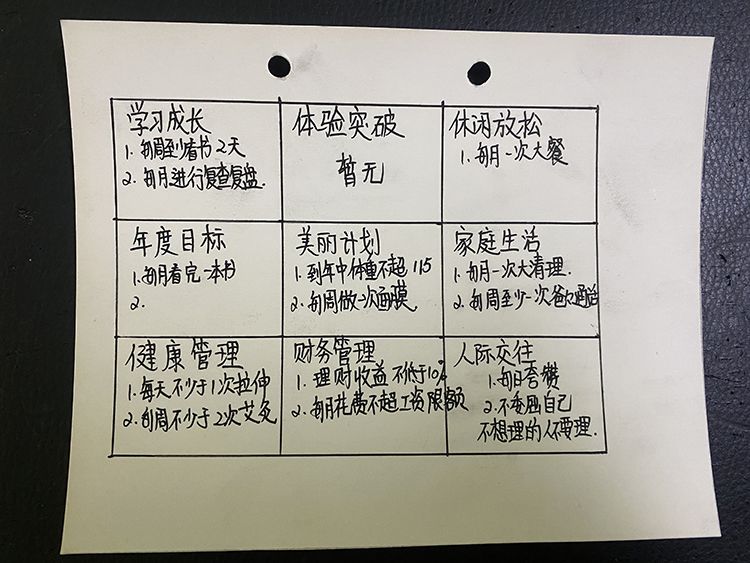 学习成长
1. 每周至少看书2天
2. 每月进行复查复盘.
体验突破
暂无
休闲放松
1. 每月一次大餐
年度目标
1. 每月看完一本书
2.
美丽计划
1. 到年中体重不超115
2. 每周做一次面膜
家庭生活
1. 每月一次大清理.
2. 每周至少一次爸妈通话
健康管理
1. 每天不少于1次拉伸
2. 每周不少于2次艾灸
财务管理
1. 理财收益不低于10%
2. 每月花费不超工资限额
人际交往
1. 每日夸赞
2. 不委屈自己
不想理的人不要理.